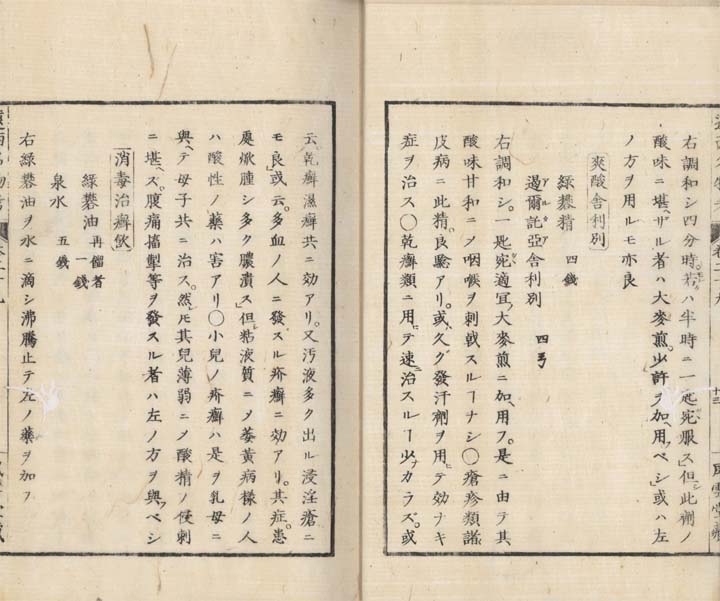 右調和シ四分時。若ハ半時ニ一匙宛服ス但此劑ノ
酸味ニ堪ヘザル者ハ大麥煎。少許ヲ加ヘ用フベシ或ハ左
ノ方ヲ用ルモ亦良
爽酸舎利別
綠礬精 四錢
遏爾託亞舎利別 四弓
右調和シ。一匙宛適宜大麥煎ニ加ヘ用フ。是ニ由テ其
酸味甘和ニメ咽喉ヲ刺戟スルヿナシ〇瘡疹類諸
皮病ニ此精。良驗アリ。或久ク發汗劑ヲ用テ効ナキ
症ヲ治ス〇乾癬類ニ用テ速ニ治スルヿ少カラズ。或
云。乾癬濕癬共ニ効アリ。又汚液多ク出ル浸淫瘡ニ
モ良ト或云。多血ノ人ニ發スル疥癬ニ効アリ。其症。患
處焮腫シ多ク膿潰ス但粘液質ニメ萎黄病樣ノ人
ハ酸性ノ藥ハ害アリ〇小兒ノ疥癬ハ是ヲ乳母ニ
與ヘテ母子共ニ治ス。然ドモ其兒薄弱ニメ酸精ノ侵刺
ニ堪ヘズ。腹痛搐掣等ヲ發スル者ハ左ノ方ヲ與フベシ
消毒治癬飲
綠礬油 再餾者 一錢
泉水 五錢
右綠礬油ヲ水ニ滴シ沸騰止テ左ノ藥ヲ加フ